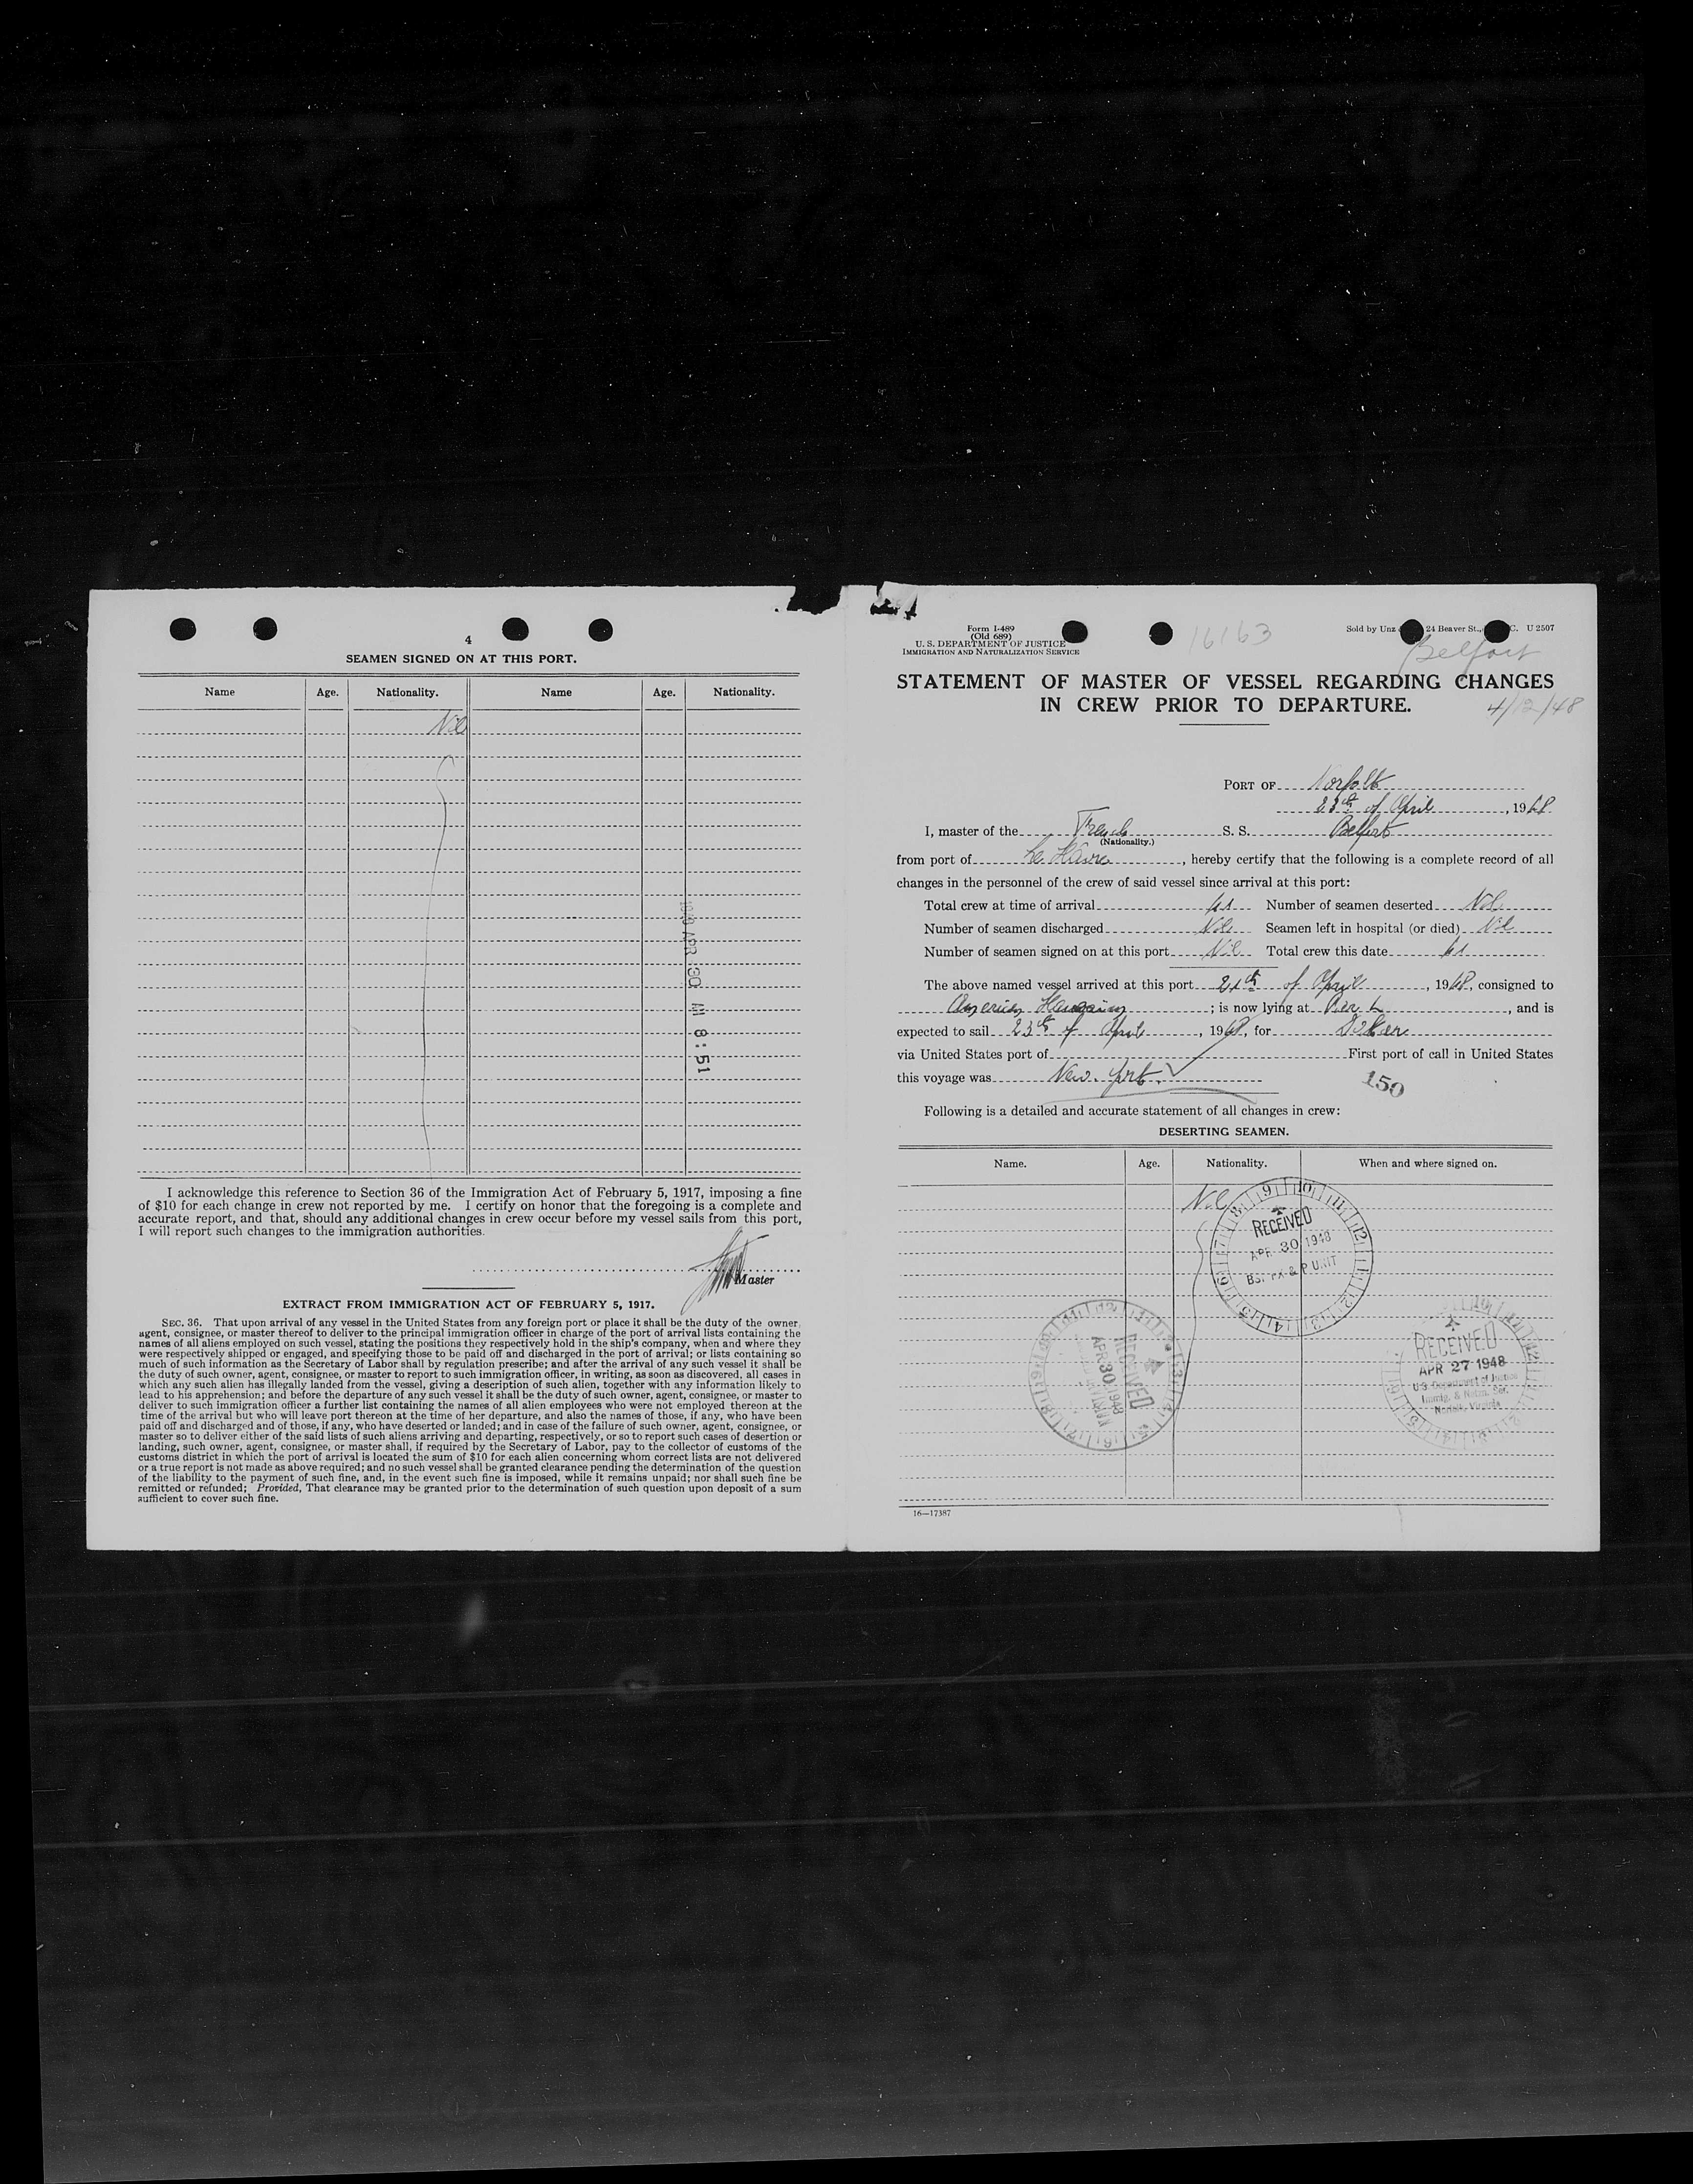 4
SEAMEN SIGNED ON AT THIS PORT.
Name Age. Nationality. Name Age. Nationality.
Nil
APR 30 AM 8:51
I acknowledge this reference to Section 36 of the Immigration Act of February 5, 1917, imposing a fine
of $10 for each change in crew not reported by me. I certify on honor that the foregoing is a complete and
accurate report, and that, should any additional changes in crew occur before my vessel sails from this port,
I will report such changes to the immigration authorities.
Master
EXTRACT FROM IMMIGRATION ACT OF FEBRUARY 5, 1917.
SEC. 36. That upon arrival of any vessel in the United States from any foreign port or place it shall be the duty of the owner,
agent, consignee, or master thereof to deliver to the principal immigration officer in charge of the port of arrival lists containing the
names of all aliens employed on such vessel, stating the positions they respectively hold in the ship's company, when and where they
were respectively shipped or engaged, and specifying those to be paid off and discharged in the port of arrival; or lists containing so
much of such information as the Secretary of Labor shall by regulation prescribe; and after the arrival of any such vessel it shall be
the duty of such owner, agent, consignee, or master to report to such immigration officer, in writing, as soon as discovered, all cases in
which any such alien has illegally landed from the vessel, giving a description of such alien, together with any information likely to
lead to his apprehension; and before the departure of any such vessel it shall be the duty of such owner, agent, consignee, or master to
deliver to such immigration officer a further list containing the names of all alien employees who were not employed thereon at the
time of the arrival but who will leave port thereon at the time of her departure, and also the names of those, if any, who have been
paid off and discharged and of those, if any, who have deserted or landed; and in case of the failure of such owner, agent, consignee, or
master so to deliver either of the said lists of such aliens arriving and departing, respectively, or so to report such cases of desertion or
landing, such owner, agent, consignee, or master shall, if required by the Secretary of Labor, pay to the collector of customs of the
customs district in which the port of arrival is located the sum of $10 for each alien concerning whom correct lists are not delivered
or a true report is not made as above required; and no such vessel shall be granted clearance pending the determination of the question
of the liability to the payment of such fine, and, in the event such fine is imposed, while it remains unpaid; nor shall such fine be
remitted or refunded; Provided, That clearance may be granted prior to the determination of such question upon deposit of a sum
sufficient to cover such fine.
Form I-489
(Old 689)
U. S. DEPARTMENT OF JUSTICE
IMMIGRATION AND NATURALIZATION SERVICE
16163
Sold by Unz 24 Beaver St., C. U 2507
Belfort
STATEMENT OF MASTER OF VESSEL REGARDING CHANGES
IN CREW PRIOR TO DEPARTURE.
4/12/48
PORT OF Norfolk
23th of April, 1948
I, master of the French S. S. Belfort
(Nationality.)
from port of Le Havre, hereby certify that the following is a complete record of all
changes in the personnel of the crew of said vessel since arrival at this port:
Total crew at time of arrival 41 Number of seamen deserted Nil
Number of seamen discharged Nil Seamen left in hospital (or died) Nil
Number of seamen signed on at this port Nil Total crew this date 41
The above named vessel arrived at this port 21th of April, 1948, consigned to
; is now lying at Pier L, and is
expected to sail 23th of April, 1948, for Dakar
via United States port of First port of call in United States
this voyage was New York.
150
Following is a detailed and accurate statement of all changes in crew:
DESERTING SEAMEN.
Name. Age. Nationality. When and where signed on.
Nil
RECEIVED
APR 30 1948
RECEIVED
APR 30 1948
RECEIVED
APR 27 1948
U.S. Department of Justice
Immig. & Natzn. Ser.
Norfolk, Virginia
16—17387